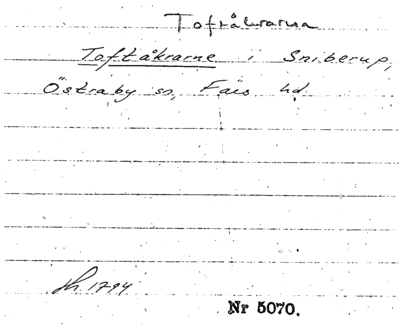 Toftåkrarna
Toftåkrarne i Sniberup,
Östraby sn, Färs hd.
1794
Nr 5070.